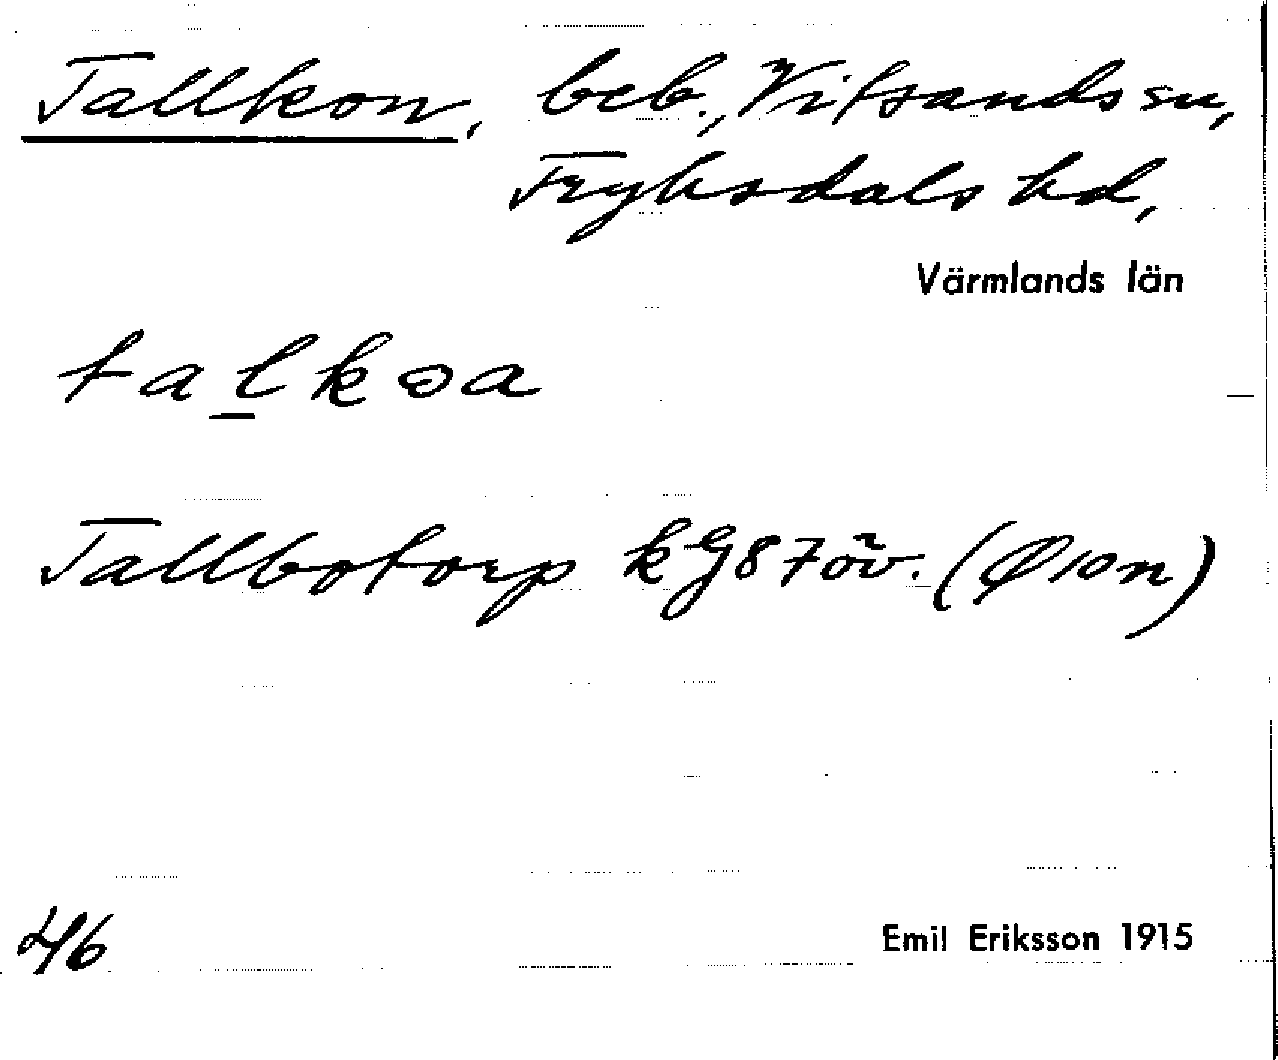 Tallkon, beb., Vitsands sn,
Fryksdals hd,
Värmlands län
talkɷa
Tallbotorp kG87öv. (Ø10n)
46
Emil Eriksson 1915